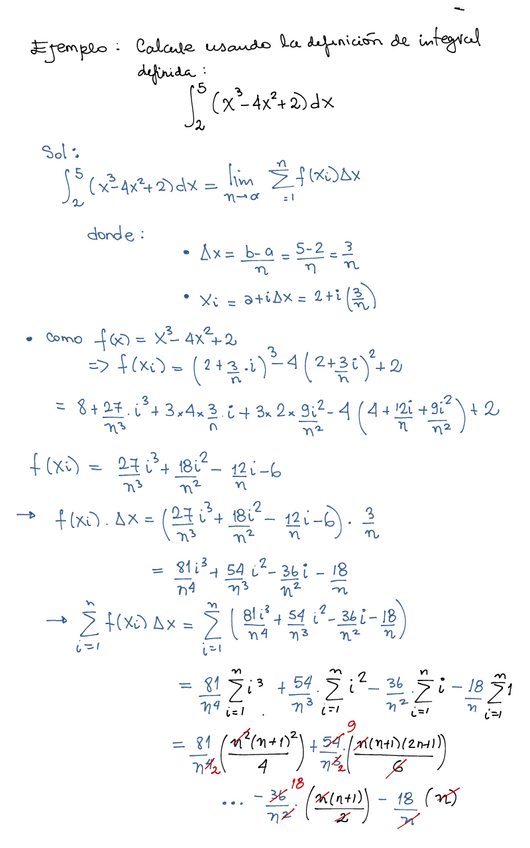 Ejemplo: Calcule usando la definición de integral
definida:
∫₂⁵ (x³-4x²+2)dx
Sol:
∫₂⁵ (x³-4x²+2)dx = lim n→α Σ =1 n f(xi)Δx
donde:
• Δx = b-a/n = 5-2/n = 3/n
• Xi = a+iΔx = 2+i(3/n)
• como f(x) = x³-4x²+2
=> f(xi) = (2+3/n·i)³-4(2+3/n i)²+2
= 8+27/n³·i³+3×4×3/n·i+3×2×9i²/n²-4(4+12i/n+9i²/n²)+2
f(xi) = 27/n³ i³+18i²/n²-12/n i-6
→ f(xi).Δx = (27/n³ i³+18i²/n²-12/n i-6)·3/n
= 81i³/n⁴+54/n³ i²-36/n² i-18/n
→ Σ i=1 n f(xi)Δx = Σ i=1 n (81i³/n⁴+54/n³ i²-36/n² i-18/n)
= 81/n⁴ Σ i=1 n i³+54/n³·Σ i=1 n i²-36/n²·Σ i=1 n i-18/n Σ i=1 n 1
= 81/n⁴ 2 (n²(n+1)²/4)+54/n³ 9 2·(n(n+1)(2n+1)/6)
... -36/n² 18·(n(n+1)/2)-18/n (n)